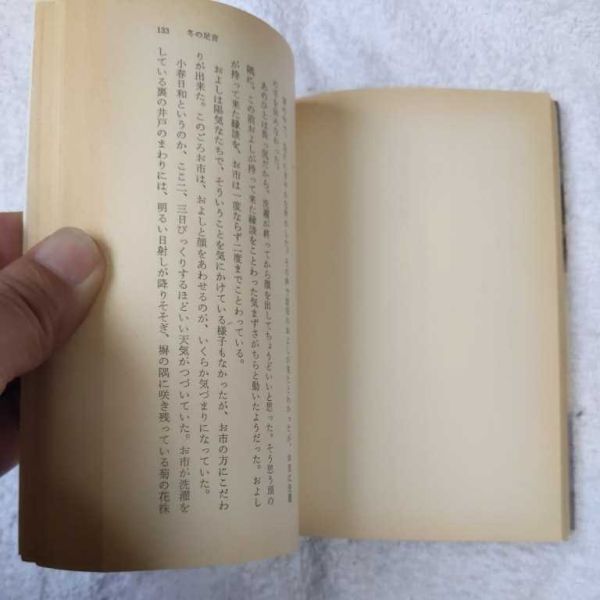 133 冬の足音
わず手を休めなかった。
あのひとは長っ尻だから、洗濯が終ってから顔を出してちょうどいいと思った。そう思う頭の
隅に、この前およしが持って来た縁談をことわった気まずさがちらと動いたようだった。およし
が持って来た縁談を、お市は一度ならず二度までことわっている。
およしは陽気なたちで、そういうことを気にかけている様子もなかったが、お市の方にこだわ
りが出来た。このごろお市は、およしと顔をあわせるのが、いくらか気づまりになっていた。
小春日和というのか、ここ二、三日びっくりするほどいい天気がつづいていた。お市が洗濯を
している裏の井戸のまわりには、明るい日射しが降りそそぎ、塀の隅に咲き残っている菊の花株